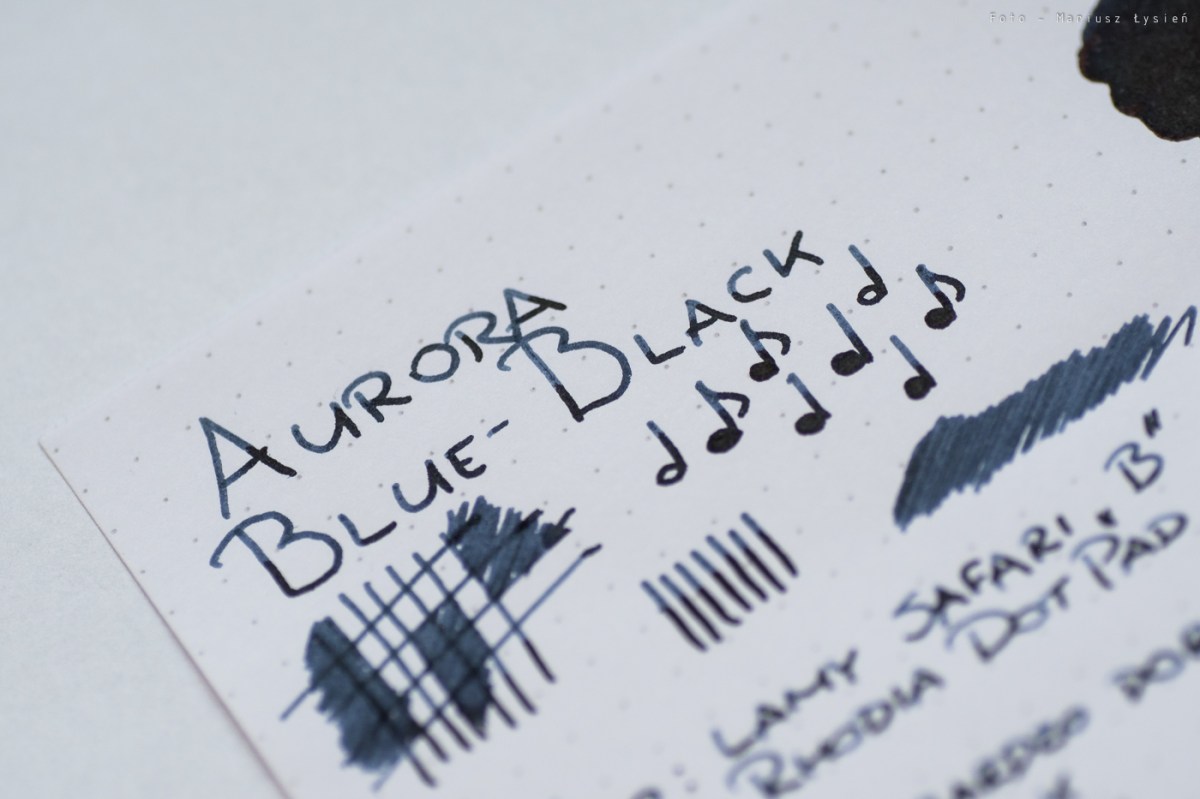 Foto - Mariusz Łysień
AURORA
BLUE-BLACK
LAMY SAFARI "B"
RHODIA DOT PAD